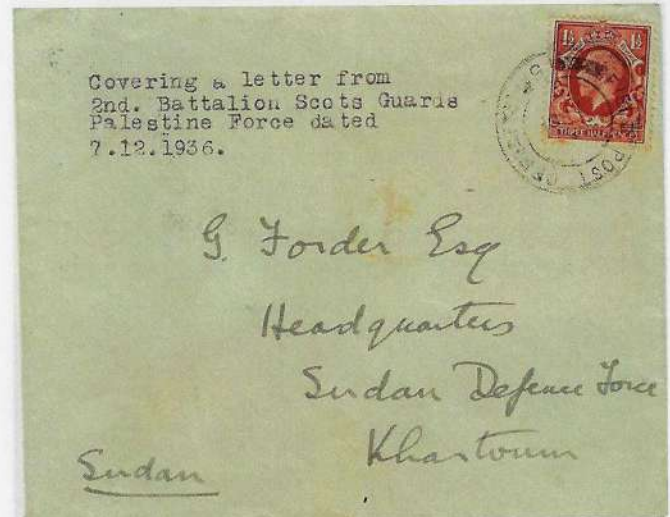 Covering a letter from
2nd. Battalion Scots Guards
Palestine Force dated
7.12.1936.
1½ 1½
THREE HALF PENCE
POST
G. Forder Esq
Headquarters
Sudan Defence Force
Khartoum
Sudan